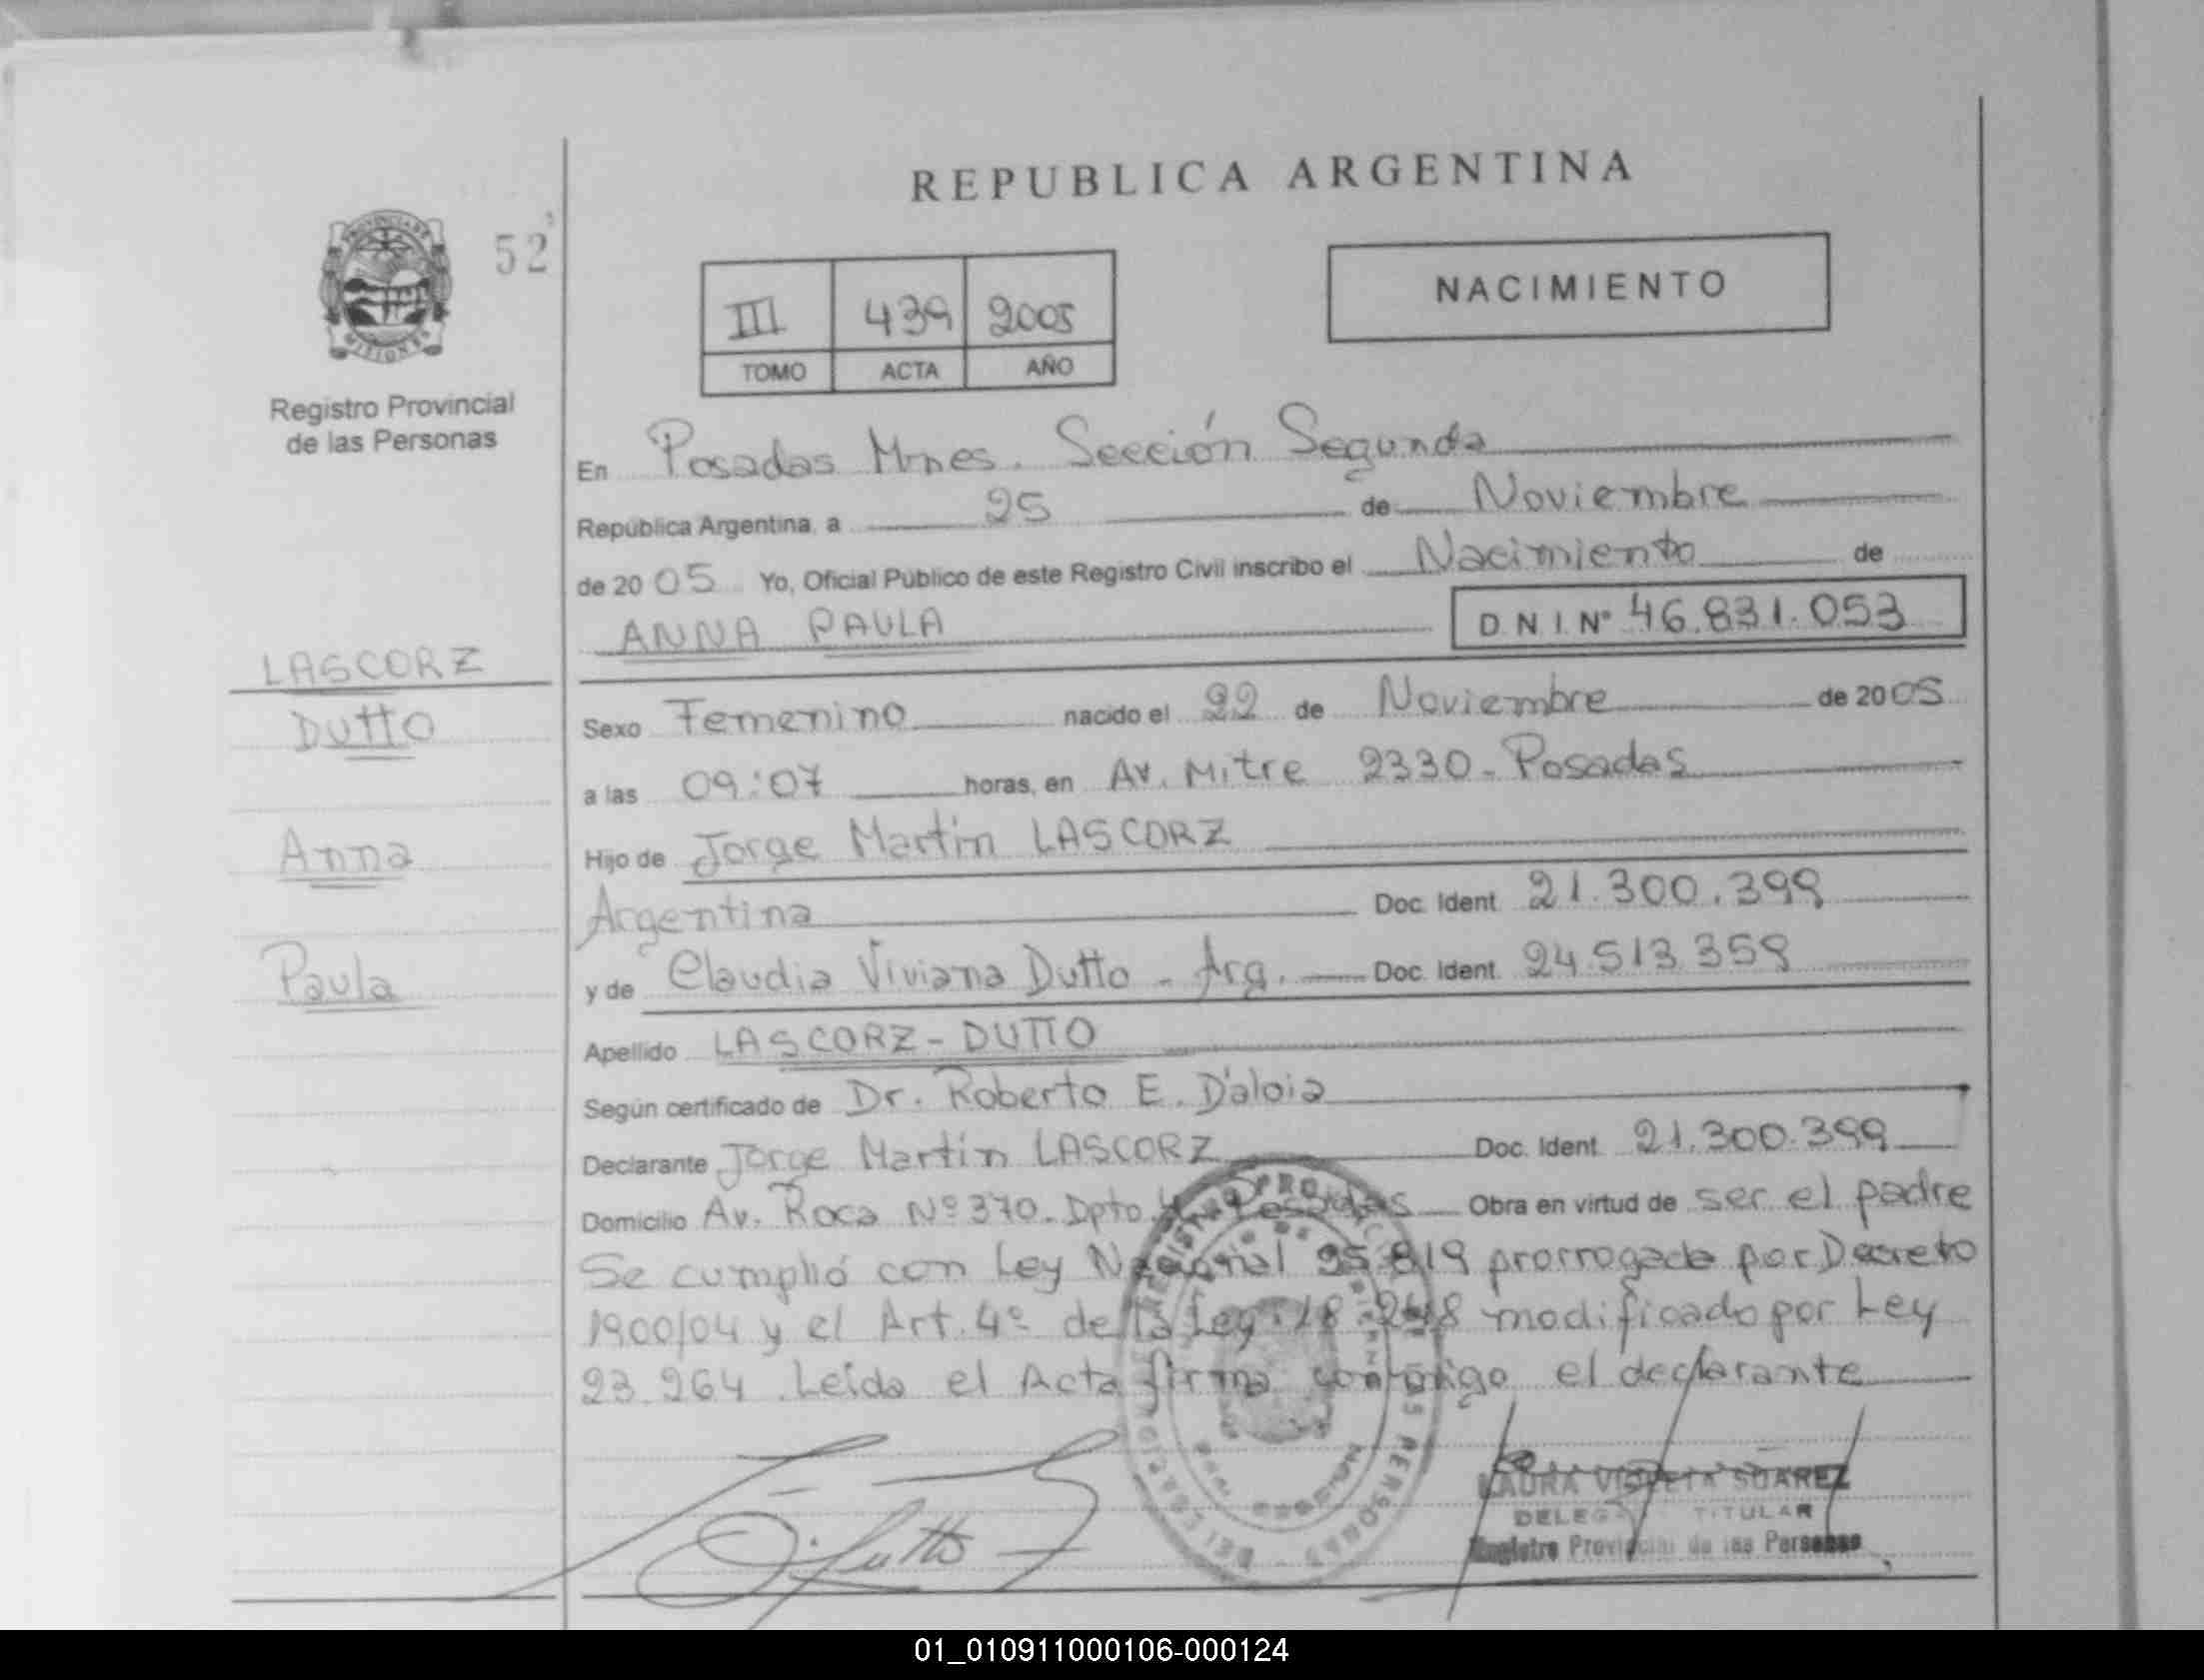 REPUBLICA ARGENTINA
52
NACIMIENTO
III 439 2005
TOMO ACTA AÑO
PROVINCIA DE
MISIONES
Registro Provincial
de las Personas
En Posadas Mnes. Sección Segunda
Republica Argentina, a 25 de Noviembre
de 20 05 Yo, Oficial Público de este Registro Civil inscribo el Nacimiento de
ANNA PAULA D N I Nº 46.831.053
LASCORZ
DUTTO
Anna
Paula
Sexo Femenino nacido el 22 de Noviembre de 20 05
a las 09:07 horas, en Av. Mitre 2330 - Posadas
Hijo de Jorge Martín LASCORZ
Argentina Doc. Ident. 21.300.399
y de Claudia Viviana Dutto - Arg. Doc. Ident. 24.513.359
Apellido LASCORZ - DUTTO
Según certificado de Dr. Roberto E. D'aloia
Declarante Jorge Martín LASCORZ Doc. Ident. 21.300.399
Domicilio Av. Roca Nº 370. Dpto Posadas Obra en virtud de ser el padre
Se cumplió con Ley Nacional 25.819 prorrogada por Decreto
1900/04 y el Art. 4º de la Ley 18.248 modificado por Ley
23.264. Leída el Acta firma conmigo el declarante
LAURA VIOLETA SUAREZ
DELEGADA TITULAR
Registro Provincial de las Personas
01_010911000106-000124